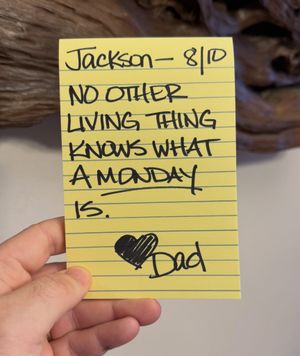 Jackson — 8/10
NO OTHER
LIVING THING
KNOWS WHAT
A MONDAY
IS.
Dad